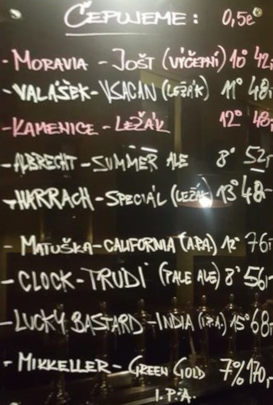 ČEPUJEME: 0,5e
- MORAVIA - JOŠT (VÝČEPNÍ) 10° 42,-
- VALÁŠEK - VSACAN (LEŽÁK) 11° 48,-
- KAMENICE - LEŽÁK 12° 48,-
- ALBRECHT - SUMMER ALE 8° 52,-
- HARRACH - SPECIÁL (LEŽÁK) 13° 48,-
- MATUŠKA - CALIFORNIA (APA) 12° 76,-
- CLOCK - TRUDI (PALE ALE) 8° 56,-
- LUCKY BASTARD - INDIA (I.P.A.) 15° 68,-
- MIKKELLER - GREEN GOLD 7% 170,-
I.P.A.